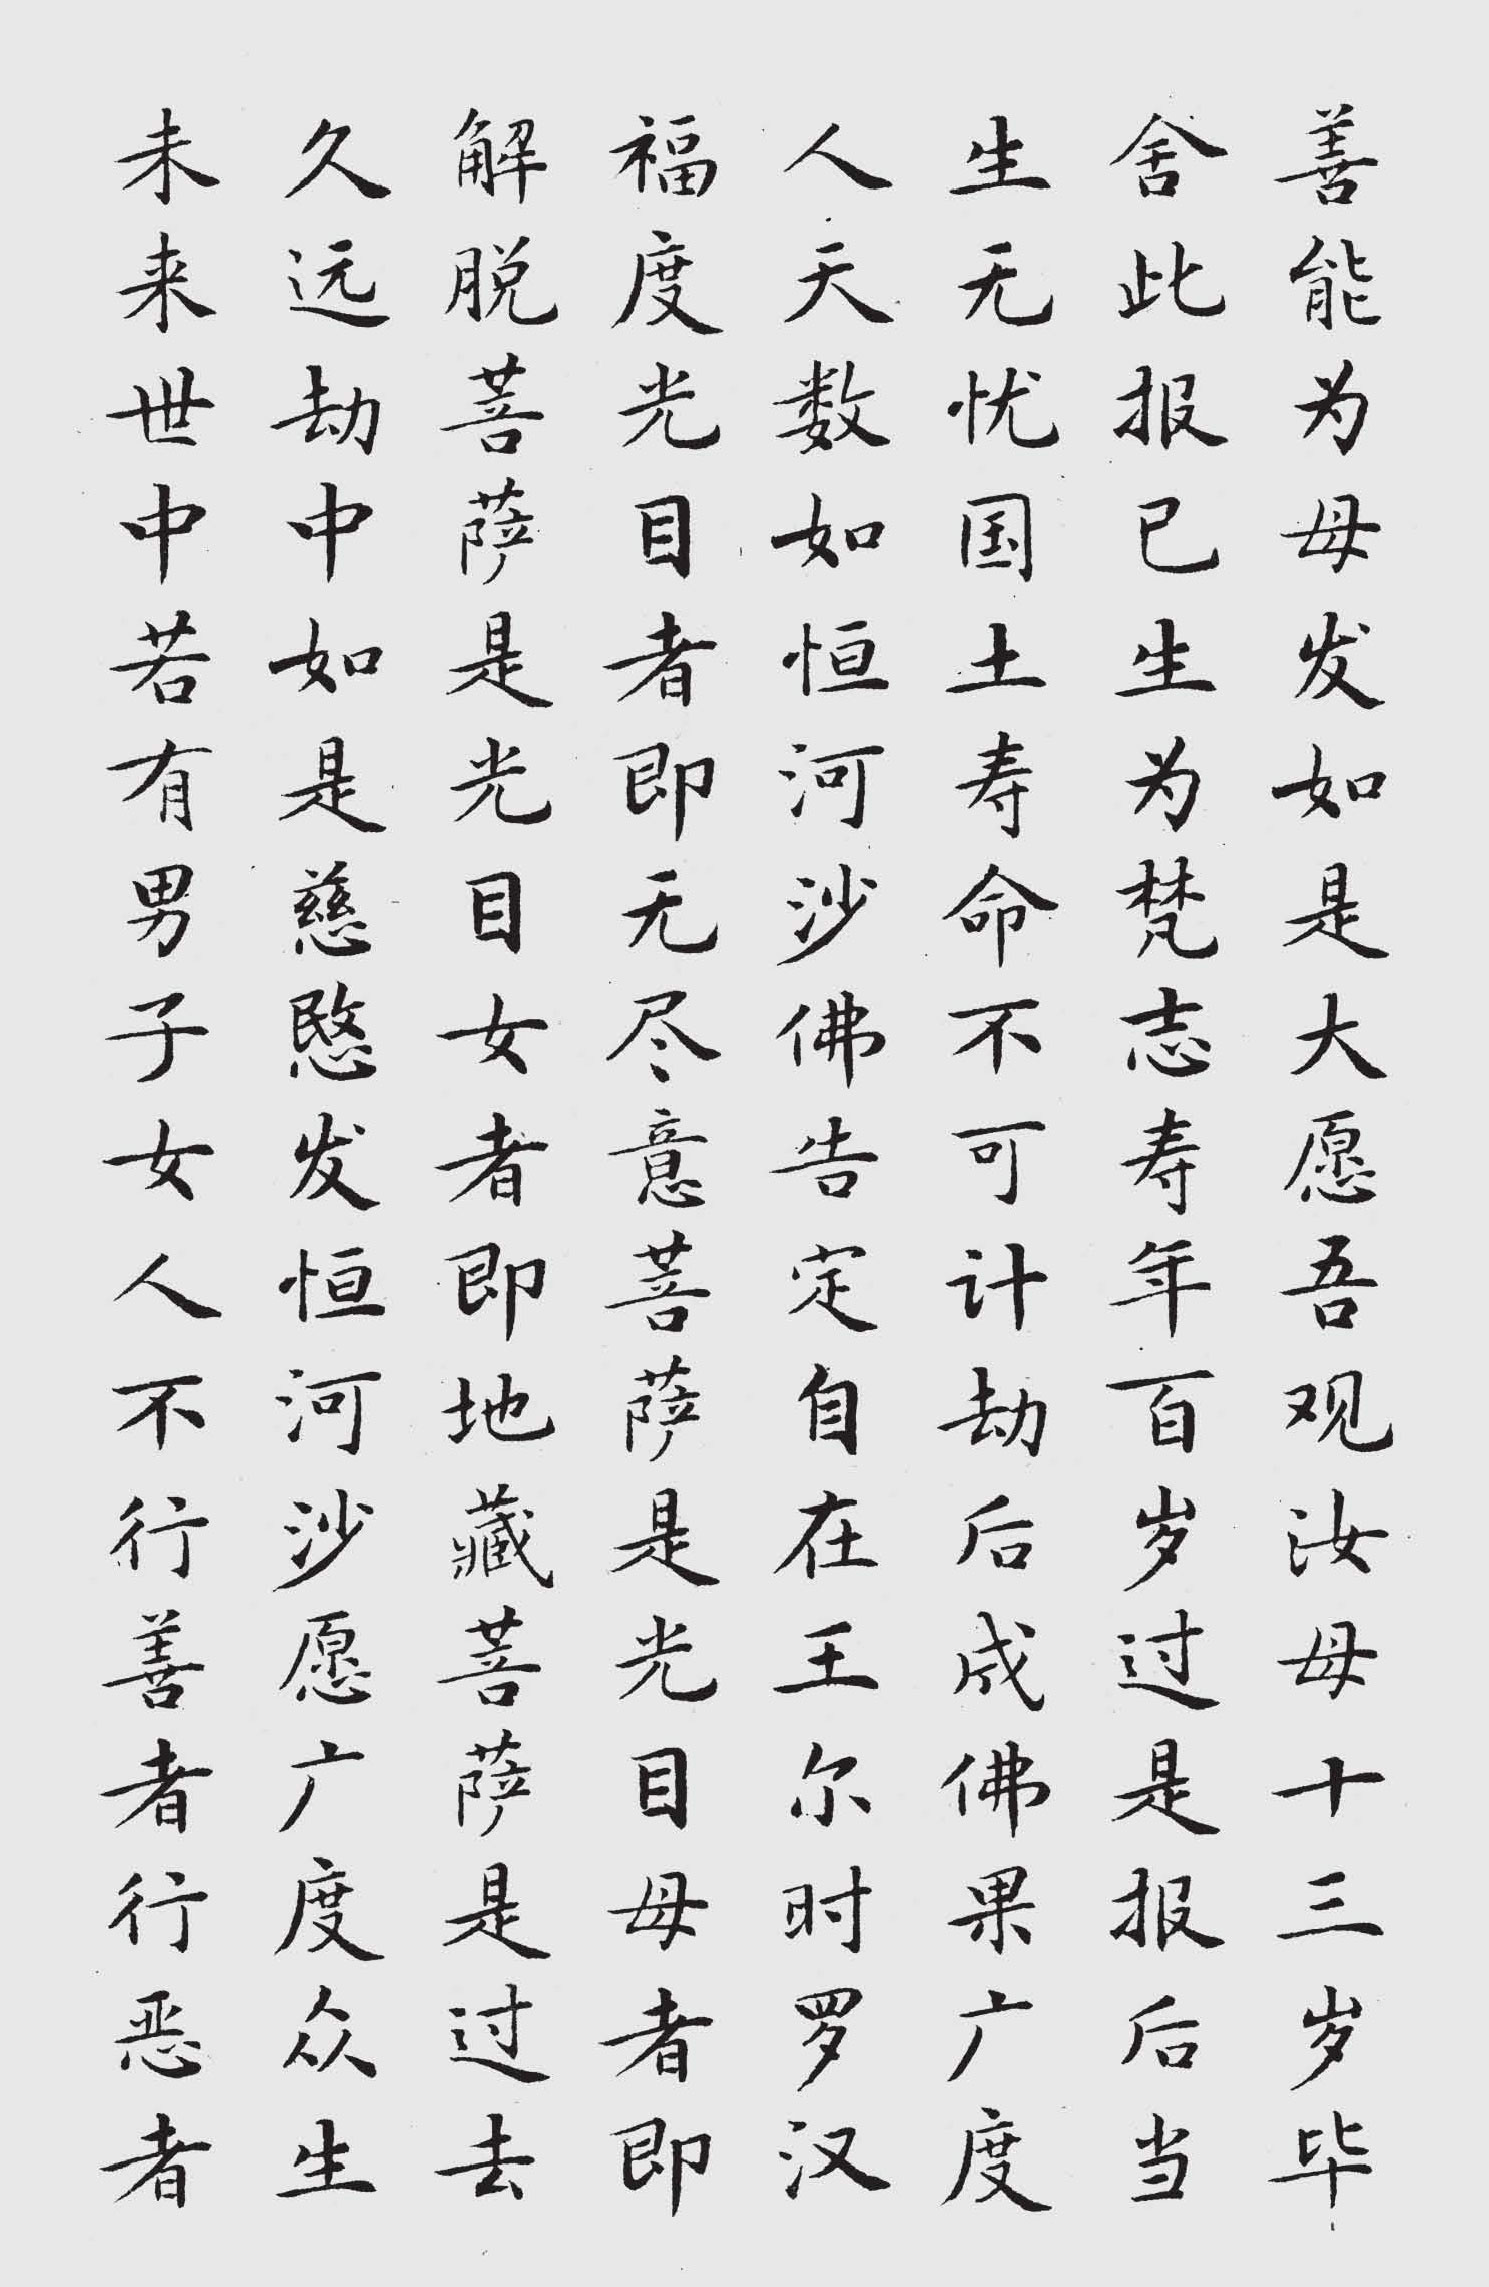 善能为母发如是大愿吾观汝母十三岁毕
舍此报已生为梵志寿年百岁过是报后当
生无忧国土寿命不可计劫后成佛果广度
人天数如恒河沙佛告定自在王尔时罗汉
福度光目者即无尽意菩萨是光目母者即
解脱菩萨是光目女者即地藏菩萨是过去
久远劫中如是慈愍发恒河沙愿广度众生
未来世中若有男子女人不行善者行恶者